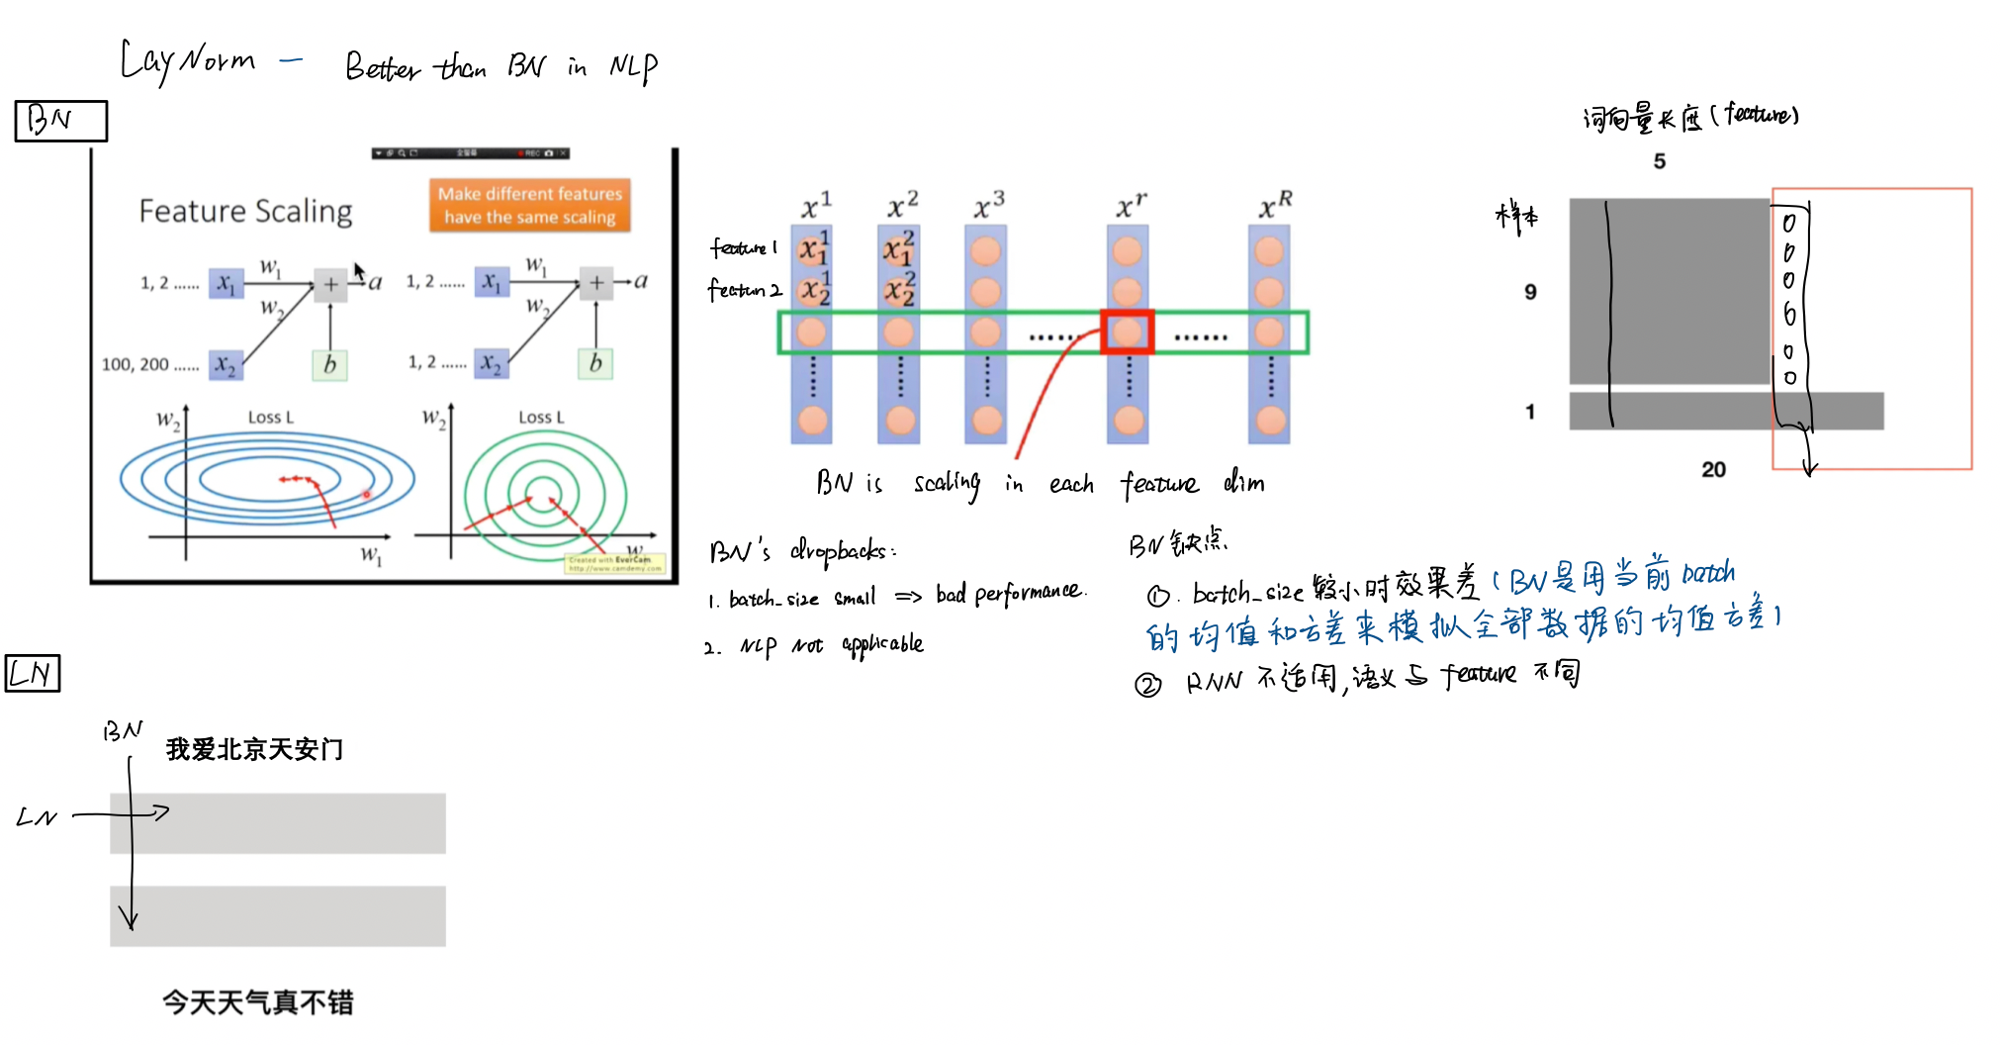 LayNorm — Better than BN in NLP
BN
全屏幕 REC
Feature Scaling
Make different features
have the same scaling
1, 2 ...... x₁ w₁ + a
w₂
100, 200 ...... x₂ b
1, 2 ...... x₁ w₁ + a
w₂
1, 2 ...... x₂ b
w₂ Loss L
w₁
w₂ Loss L
w
Created with EverCam
http://www.camdemy.com
x¹ x² x³ xʳ xᴿ
feature 1 x₁¹ x₁²
featun 2 x₂¹ x₂²
...... ......
BN is scaling in each feature dim
BN's dropbacks:
1. batch_size small => bad performance.
2. NLP not applicable
BN缺点
①. batch_size 较小时效果差 (BN是用当前 batch
的均值和方差来模拟全部数据的均值方差)
② RNN 不适用,语义与 feature 不同
词向量长度(feature)
5
样本
9
1
20
0
0
0
6
0
0
LN
BN
我爱北京天安门
LN
今天天气真不错